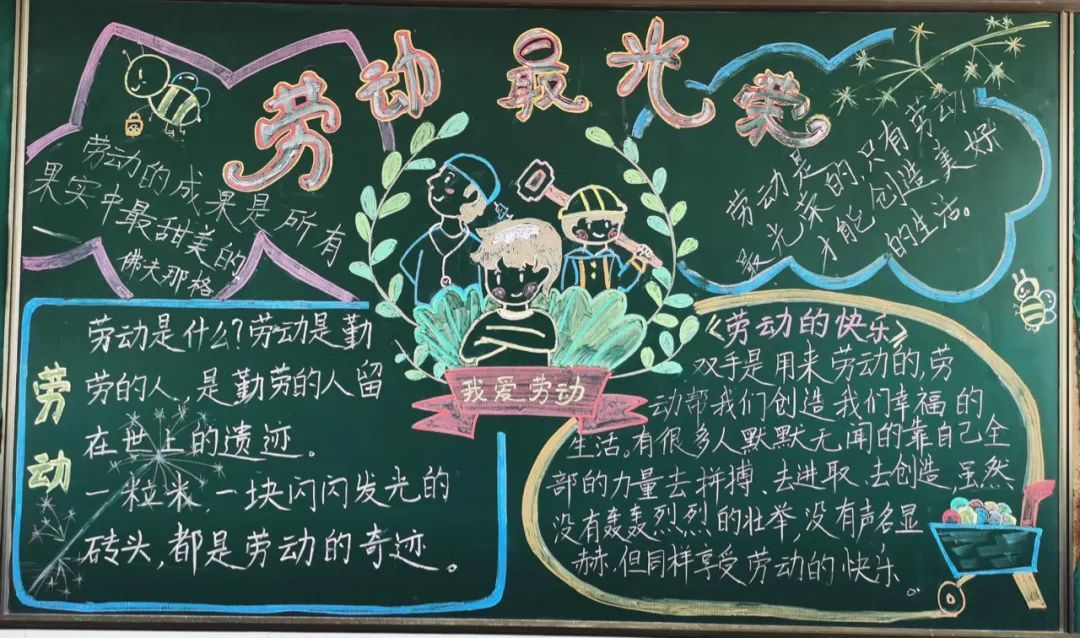 劳动最光荣
劳动的成果是所有
果实中最甜美的
佛夫那格
劳动是
最光荣的,只有劳动
才能创造美好
的生活。
劳动
劳动是什么?劳动是勤
劳的人,是勤劳的人留
在世上的遗迹。
一粒米,一块闪闪发光的
砖头,都是劳动的奇迹。
我爱劳动
《劳动的快乐》
双手是用来劳动的,劳
动帮我们创造我们幸福的
生活。有很多人默默无闻的靠自己全
部的力量去拼搏、去进取、去创造,虽然
没有轰轰烈烈的壮举,没有声名显
赫,但同样享受劳动的快乐。